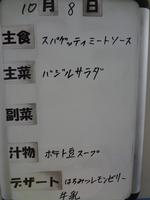 10月8日
主食 スパゲッティミートソース
主菜 バジルサラダ
副菜
汁物 ポテト豆スープ
デザート はちみつレモンゼリー
牛乳